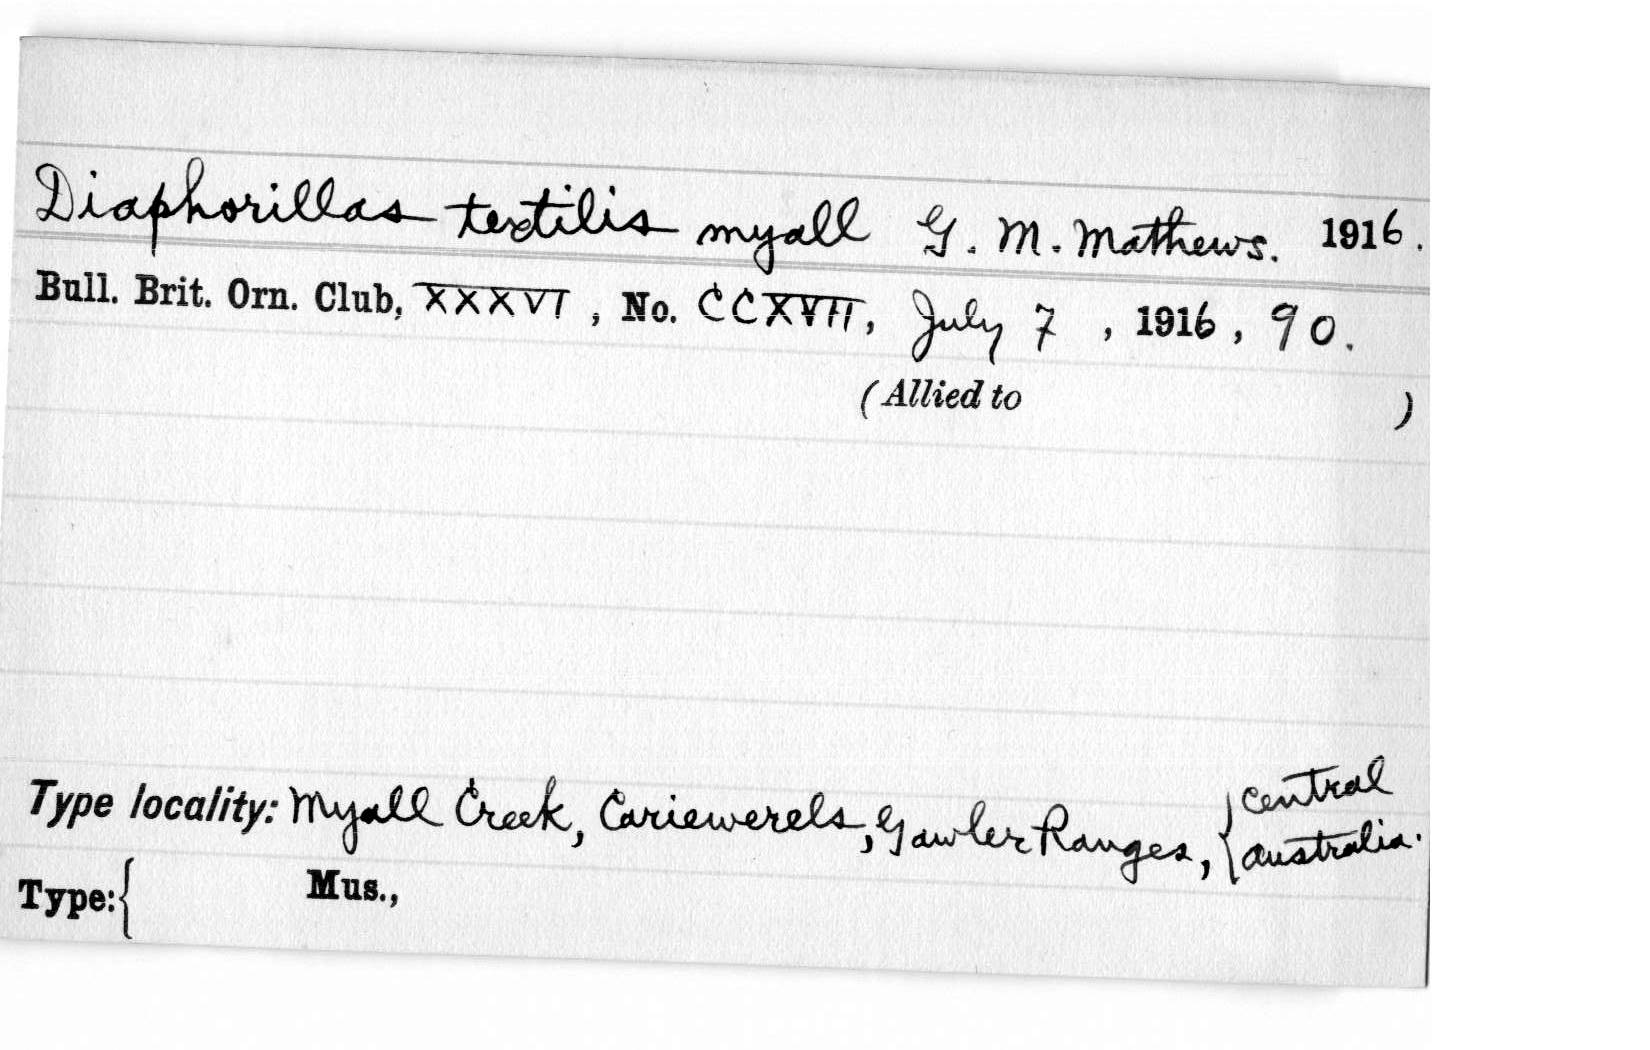 Diaphorillas textilis myall G. M. Mathews. 1916.
Bull. Brit. Orn. Club, XXXVI, No. CCXVII, July 7, 1916, 90.
(Allied to )
Type locality: Myall Creek, Cariewerels, Gawler Ranges, {central australia.
Type:{ Mus.,